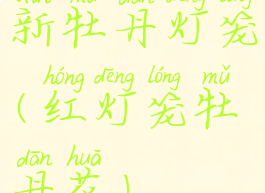 新牡丹灯笼
hóng dēng lóng mǔ
(红灯笼牡
dān huā
丹花)